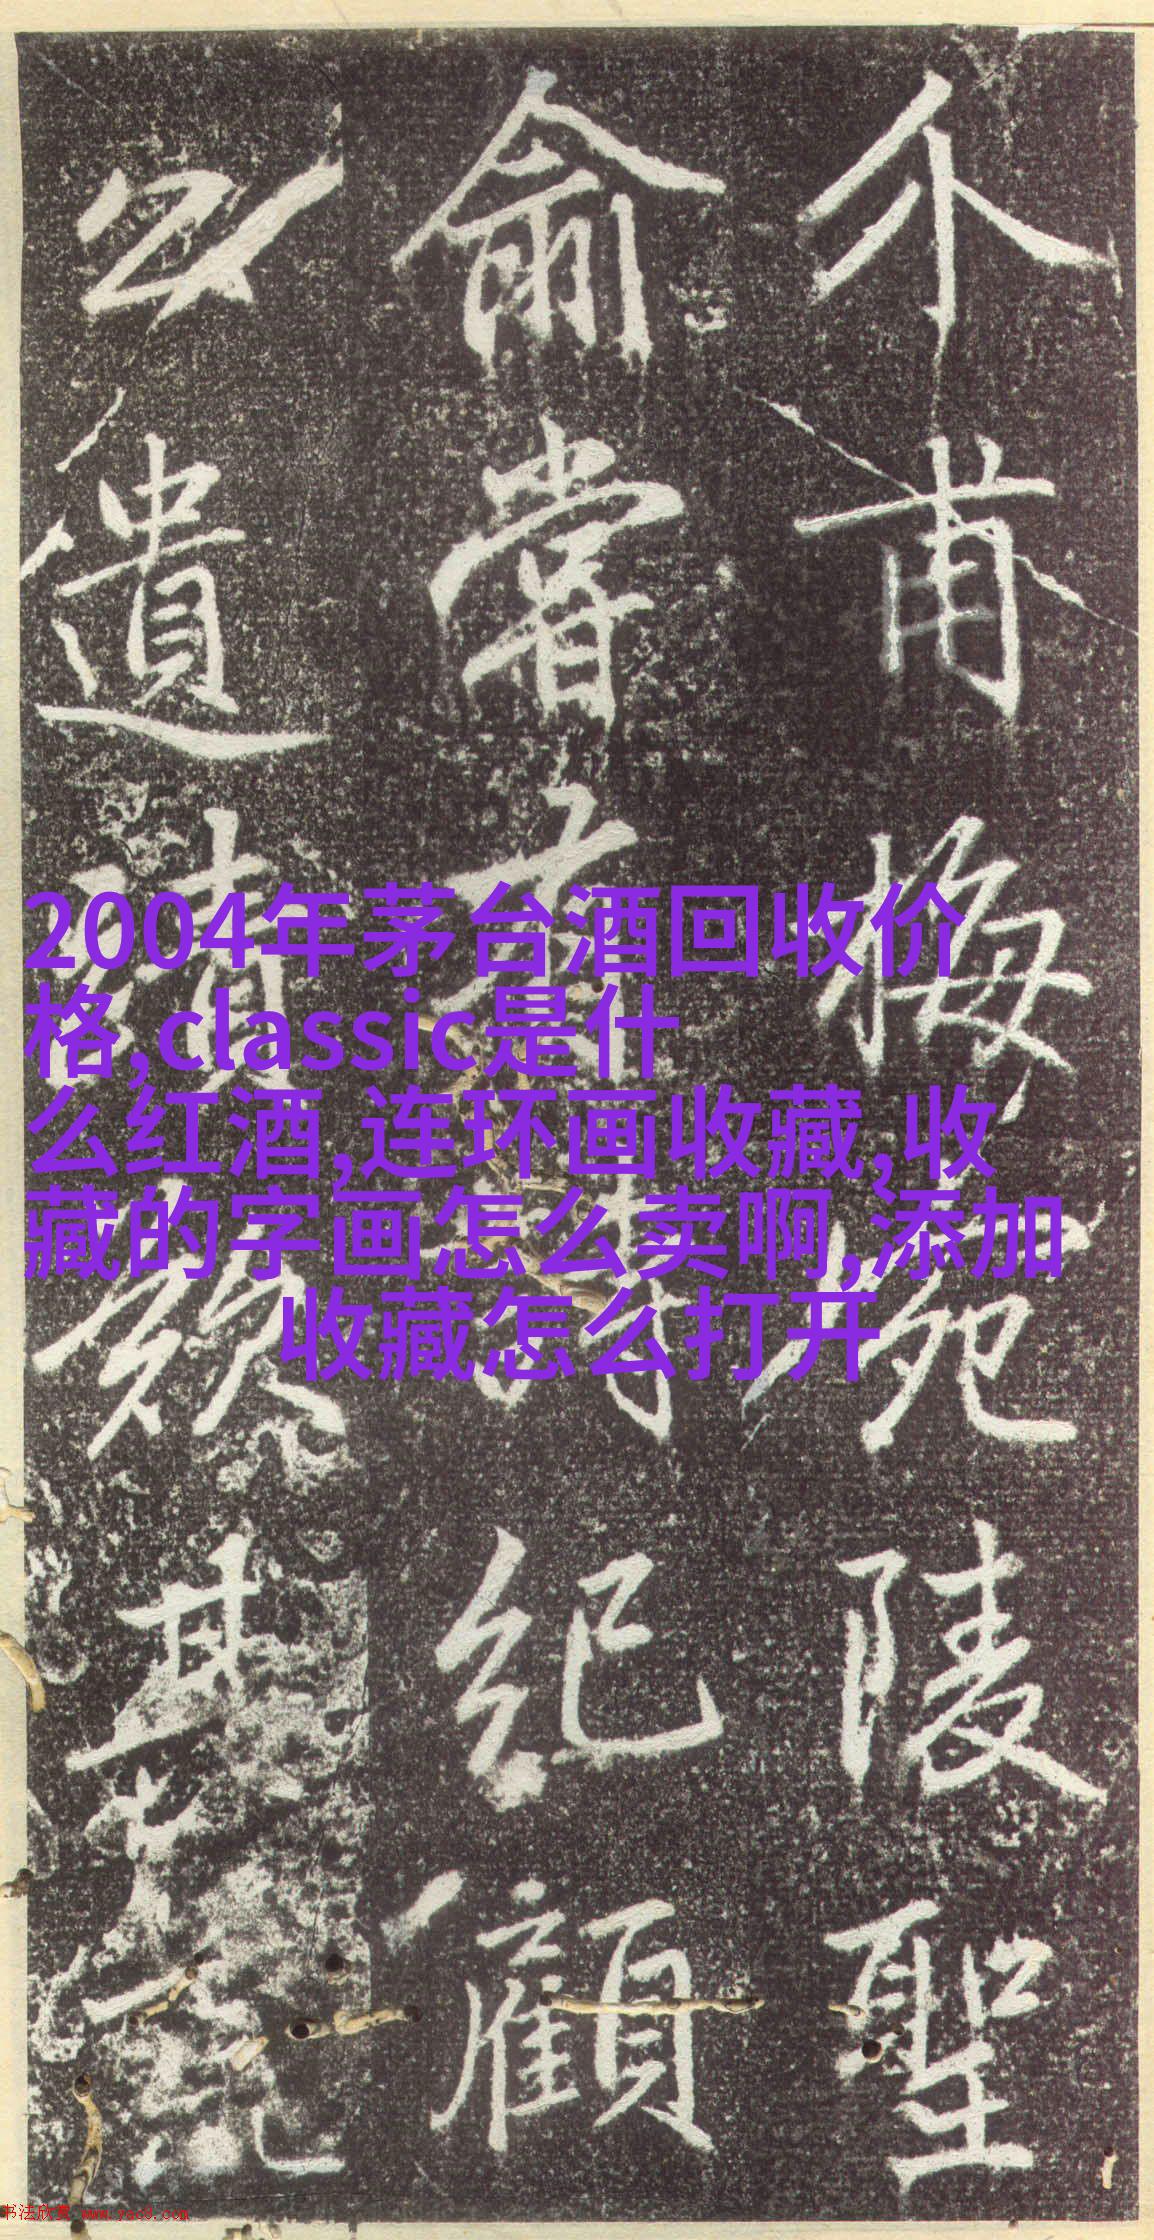 介甫梅挽陵聖
俞嘗有詩紀顧
公遺
2004年茅台酒回收价
格,classic是什
么红酒,连环画收藏,收
藏的字画怎么卖啊,添加
收藏怎么打开
书法欣赏 www.yac8.com